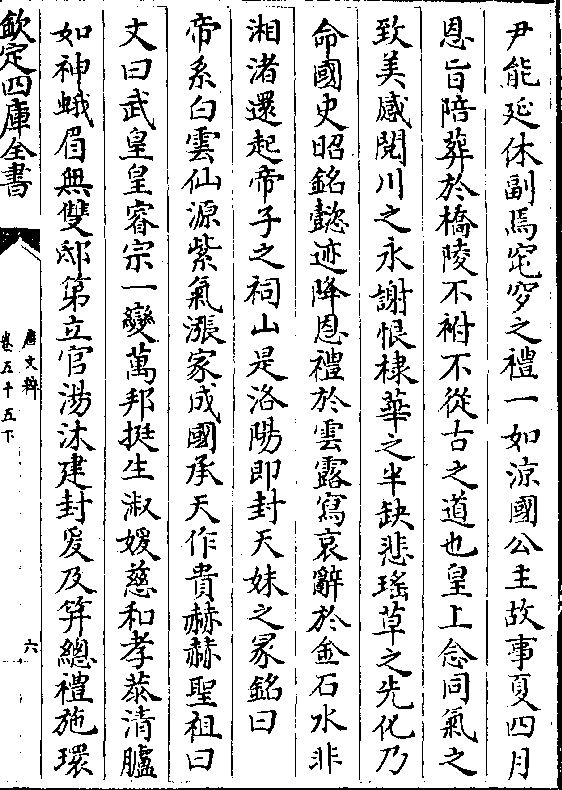 尹能延休副馬窀穸之禮一如涼國公主故事夏四月
恩旨陪葬於橋陵不祔不從古之道也皇上念同氣之
致美感閱川之永謝恨棣華之半缺悲瑤草之先化乃
命國史昭銘懿迹降恩禮於雲露寫哀辭於金石水非
湘渚還起帝子之祠山是洛陽即封天妹之冢銘曰
帝系白雲仙源紫氣漲家成國承天作貴赫赫聖祖曰
文曰武皇皇睿宗一變萬邦挺生淑媛慈和孝恭清矑
如神蛾眉無雙邸第立官湯沐建封爰及笄總禮施環
欽定四庫全書
唐文粹
卷五十五下
六